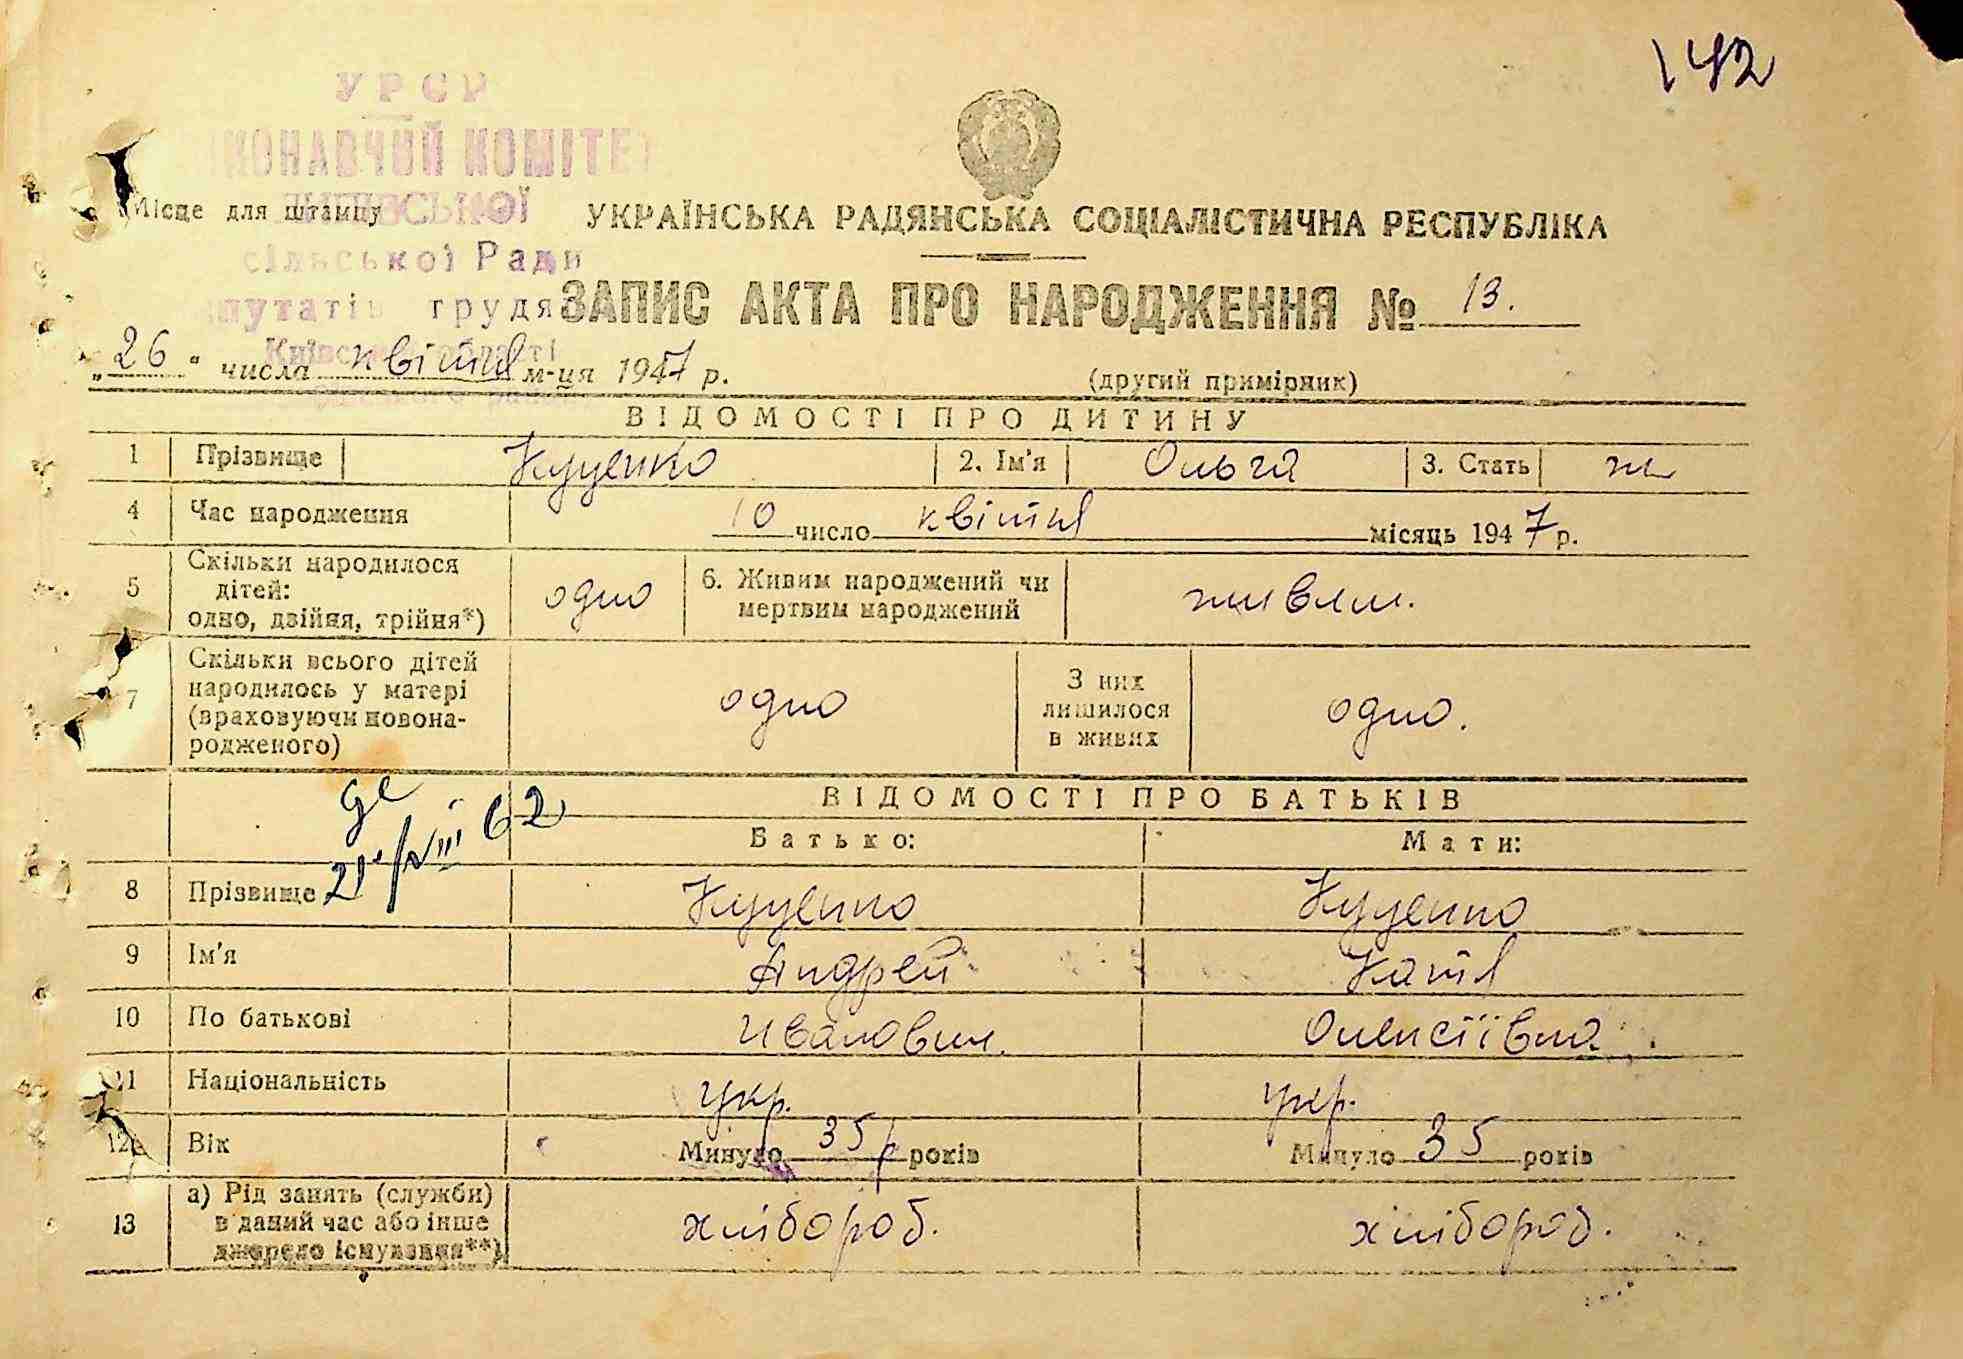 142
УРСР
КОНАВЧИЙ КОМІТЕ
Місце для штампу
УКРАЇНСЬКА РАДЯНСЬКА СОЦІАЛІСТИЧНА РЕСПУБЛІКА
сільської Ради
путатів трудя
ЗАПИС АКТА ПРО НАРОДЖЕННЯ № 13.
Київської області
„26“ числа квітня м-ця 1947 р.
(другий примірник)
ВІДОМОСТІ ПРО ДИТИНУ
1 Прізвище Куценко 2. Ім'я Ольга 3. Стать ж
4 Час народження 10 число квітня місяць 1947 р.
5 Скільки народилося дітей: одно, двійня, трійня*) одно 6. Живим народжений чи мертвим народжений живим.
7 Скільки всього дітей народилось у матері (враховуючи новонародженого) одно З них лишилося в живих одно.
21/VIII 62
ВІДОМОСТІ ПРО БАТЬКІВ
Батько: Мати:
8 Прізвище Куценко Куценко
9 Ім'я Андрей Катя
10 По батькові Иванович. Олексіївна
11 Національність укр. укр.
12 Вік Минуло 35 років Минуло 35 років
13 а) Рід занять (служби) в даний час або інше джерело існування**) хлібороб. хлібороб.